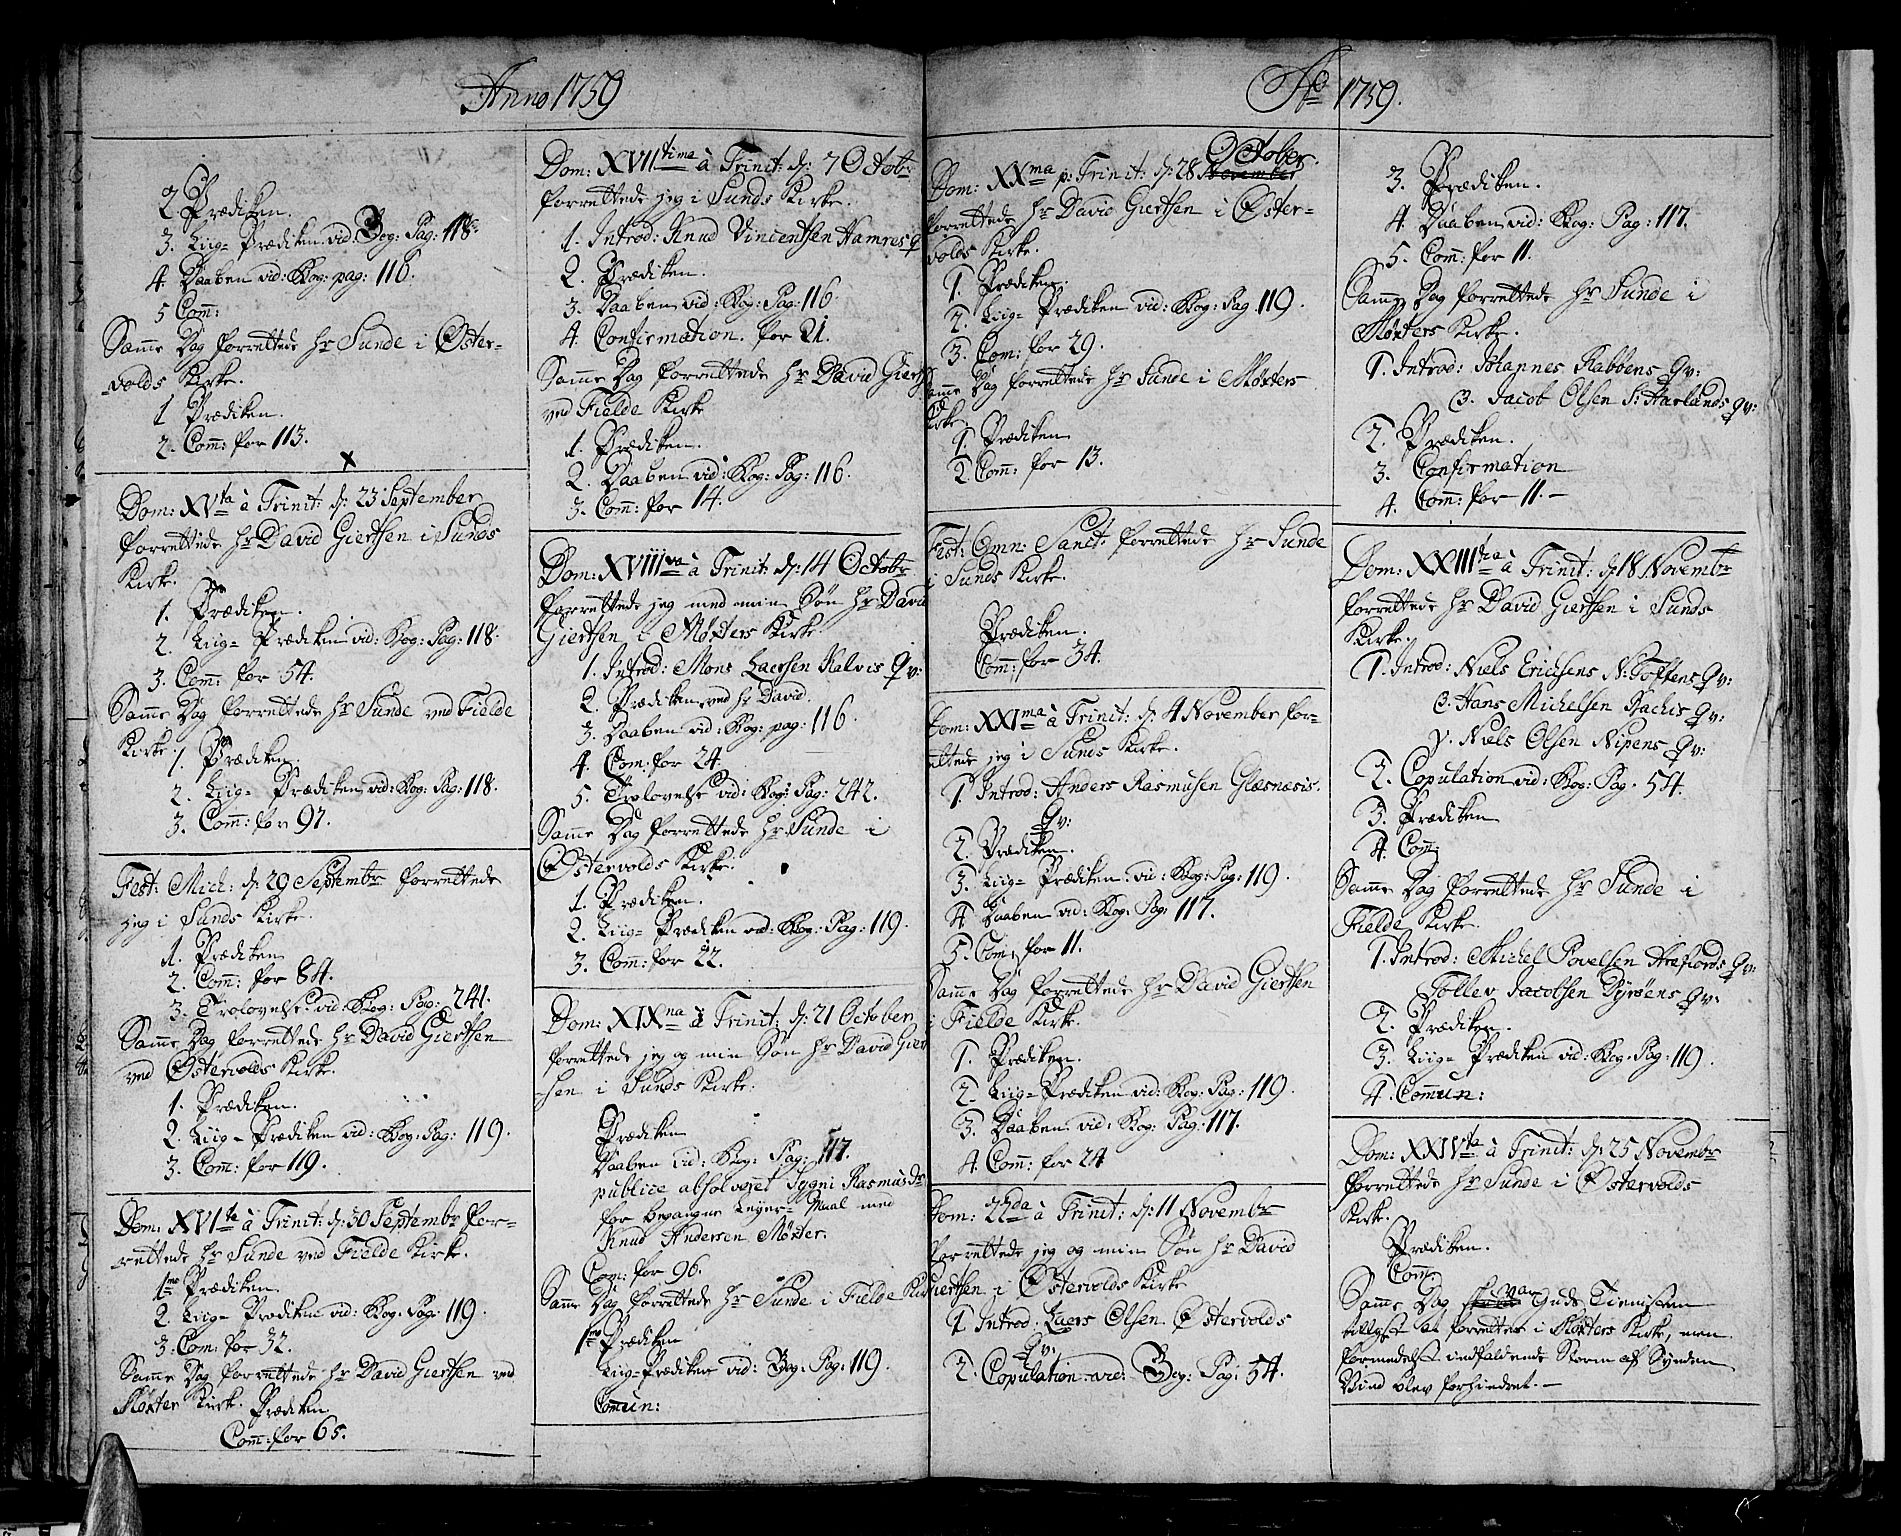 Anno 1759
2 Prædiken.
3. Liig= Prædiken. vid: Bog: Pag: 118.
4. Daaben vid: Bog: pag: 116.
5 Com̄:
Samme Dag forrettede Hr Sunde i Øster-
volds Kirke.
1 Prædiken.
2. Com̄: for 113.
x
Dom: XVta à Trinit: d: 23 September
forrettede Hr David Giertsen i Sunds
Kirke.
1. Prædiken.
2. Liig= Prædiken vid: Bog: Pag: 118.
3. Com̄: for 54.
Samme Dag forrettede Hr Sunde ved Fielde
Kirke.
1. Prædiken.
2. Liig= Prædiken vid: Bog: Pag: 118.
3. Com̄: for 97.
Fest: Mich: d: 29 Septembr forrettede
jeg i Sunds Kirke.
1. Prædiken
2. Com̄: for 84.
3. Trolovelse vid: Bog: Pag: 241.
Samme Dag forrettede Hr David Giertsen
ved Østervolds Kirke.
1. Prædiken.
2. Liig= Prædiken vid: Bog: Pag: 119.
3. Com̄: for 119.
Dom: XVIta à Trinit: d: 30 Septembr for-
rettede Hr Sunde ved Fielde Kirke.
1mo Prædiken.
2. Liig= Prædiken vid: Bog: Pag: 119.
3. Com: for 32.
Samme Dag forrettede Hr David Giertsen ved
Møxter Kirke. Prædiken
Com̄: for 65.
Dom: XVIItima à Trinit: d: 7 Octobr
forrettede jeg i Sunds Kirke.
1. Introd: Knud Vincentsen Hamres q
2. Prædiken.
3. Daaben vid: Bog: Pag: 116
4. Confirmation. for 21.
Samme Dag forrettede Hr David Giert
ved Fielde Kirke
1. Prædiken.
2. Daaben vid: Bog: Pag: 116.
3. Com̄: for 14.
Dom: XVIIIva à Trinit: d: 14 Octobr
forrettede jeg med min Søn Hr David
Giertsen i Møxters Kirke.
1. Introd: Mons Laersen Kalvis qv:
2. Prædiken ved Hr David.
3. Daaben vid: Bog: pag: 116
4. Com: for 24.
5. Trolovelse vid: Bog: Pag: 242.
Samme Dag forrettede Hr Sunde i
Østervolds Kirke.
1. Prædiken.
2. Liig= Prædiken vid: Bog: Pag: 119.
3. Com̄: for 22.
Dom: XIXna à Trinit: d: 21 October
forrettede jeg og min Søn Hr David Giert
-sen i Sunds Kirke.
Prædiken
Daaben vid: Bog: Pag: 117.
publice absolveret Sygni Rasmusdr
for begangne Leyer= Maal med
Knud Andersen Møxter.
Com: for 96.
Samme Dag forrettede Hr Sunde i Fielde Kirk
1mo Prædiken
Liig= Prædiken vid: Bog: Pag: 119.
Com̄un:
Ao 1759.
October.
Dom: XXma p: Trinit: d: 28 November
forrettede Hr David Giertsen i Øster-
volds Kirke
1. Prædiken.
2. Liig= Prædiken vid: Bog: Pag 119.
3. Com: for 29.
Samme Dag forrettede Hr Sunde i Møxters
Kirke.
1. Prædiken
2 Com̄: for 13.
Fest: Omn: Sanct: forrettede Hr Sunde
i Sunds Kirke.
Prædiken.
Com̄: for 34.
Dom: XXIma à Trinit: d: 4 November for-
rettede jeg i Sunds Kirke.
1. Introd: Anders Rasmusen Glæsnæsis.
qv:
2. Prædiken.
3. Liig= Prædiken vid: Bog: Pag: 119.
4. Daaben vid: Bog: Pag: 117.
5. Com: for 11.
Samme Dag forrettede Hr David Giertsen
i Fielde Kirke.
1. Prædiken.
2. Liig= Prædiken vid: Bog: Pag: 119.
3. Daaben vid: Bog: Pag: 117.
4. Com̄: for 24
Dom: 22da à Trinit: d: 11 Novembr
forrettede jeg og min Søn Hr David
Giertsen i Østervolds Kirke
1. Introd: Laers Olsen Østervolds
qv:
2. Copulation vid: Bog: Pag: 54.
3. Prædiken.
4. Daaben vid: Bog: Pag: 117.
5. Com̄: for 11.
Samme Dag forrettede Hr Sunde i
Møxters Kirke.
1. Introd: Johannes Rabbens qv:
2. Jacob Olsen S: Harlands qv:
2. Prædiken.
3. Confirmation
4. Com̄: for 11.-
Dom: XXIIItia à Trinit: d: 18 Novembr
forrettede Hr David Giertsen i Sunds
Kirke.
1. Introd: Niels Erichsens N: Toftens qv:
2. Hans Michelsen Bachis qv:
γ. Niels Olsen Nipens qv:
2. Copulation vid: Bog: Pag. 54.
3. Prædiken
4. Com̄:
Samme Dag forrettede Hr Sunde i
Fielde Kirke.
1. Introd: Michel Povelsen Arefiords qv:
Tollev Jacobsen Dyrøens qv:
2. Prædiken.
3. Liig= Prædiken vid: Bog: Pag: 119.
4. Com̄un:
Dom: XXIVta à Trinit: d: 25 Novembr
forrettede Hr Sunde i Østervolds
Kirke.
Prædiken.
Com̄:
Samme Dag var Guds Tienisten
tillyst at forrettes i Møxters Kirke, men
formedelst indfaldende Storm af Synden
Vind blev forhindret.-